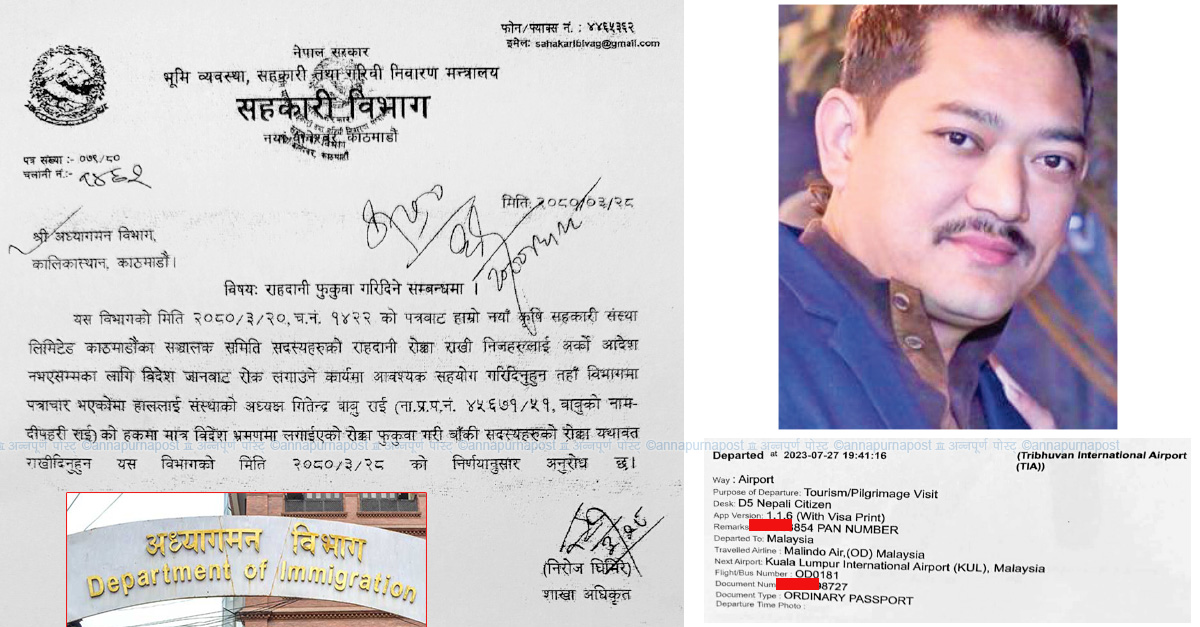 फोन/फ्याक्स नं. : ४४६५३६२
इमेल: sahakaribivag@gmail.com
नेपाल सरकार
भूमि व्यवस्था, सहकारी तथा गरिवी निवारण मन्त्रालय
सहकारी विभाग
नयाँ वानेश्वर, काठमाडौं
पत्र संख्या :- ०७९/८०
चलानी नं.:- १४६२
मिति: २०८०/०३/२८
श्री अध्यागमन विभाग,
कालिकास्थान, काठमाडौं।
विषयः राहदानी फुकुवा गरिदिने सम्बन्धमा ।
यस विभागको मिति २०८०/३/२०, च.नं. १४२२ को पत्रवाट हाम्रो नयाँ कृषि सहकारी संस्था
लिमिटेड काठमाडौंका सञ्चालक समिति सदस्यहरुको राहदानी रोक्का राखी निजहरुलाई अर्को आदेश
नभएसम्मका लागि विदेश जानबाट रोक लगाउने कार्यमा आवश्यक सहयोग गरिदिनुहुन तहाँ विभागमा
पत्राचार भएकोमा हाललाई संस्थाको अध्यक्ष गितेन्द्र वावु राई (ना.प्र.प.नं. ४५६७१/५१, वावुको नाम-
दीपहरी राई) को हकमा मात्र विदेश भ्रमणमा लगाईएको रोक्का फुकुवा गरी बाँकी सदस्यहरुको रोक्का यथावत
राखीदिनुहुन यस विभागको मिति २०८०/३/२८ को निर्णयानुसार अनुरोध छ।
(निरोज घिमिरे)
शाखा अधिकृत
अध्यागमन विभाग
Department of Immigration
अन्नपूर्ण पोस्ट ©annapurnapost अन्नपूर्ण पोस्ट ©annapurnapost अन्नपूर्ण पोस्ट ©annapurnapost अन्नपूर्ण पोस्ट ©annapurnapost अन्नपूर्ण पोस्ट ©annapurnapost
Departed at 2023-07-27 19:41:16 (Tribhuvan International Airport
(TIA))
Way : Airport
Purpose of Departure: Tourism/Pilgrimage Visit
Desk: D5 Nepali Citizen
App Version: 1.1.6 (With Visa Print)
Remarks 3854 PAN NUMBER
Departed To: Malaysia
Travelled Airline : Malindo Air,(OD) Malaysia
Next Airport: Kuala Lumpur International Airport (KUL), Malaysia
Flight/Bus Number : OD0181
Document Num 08727
Document Type : ORDINARY PASSPORT
Departure Time Photo :